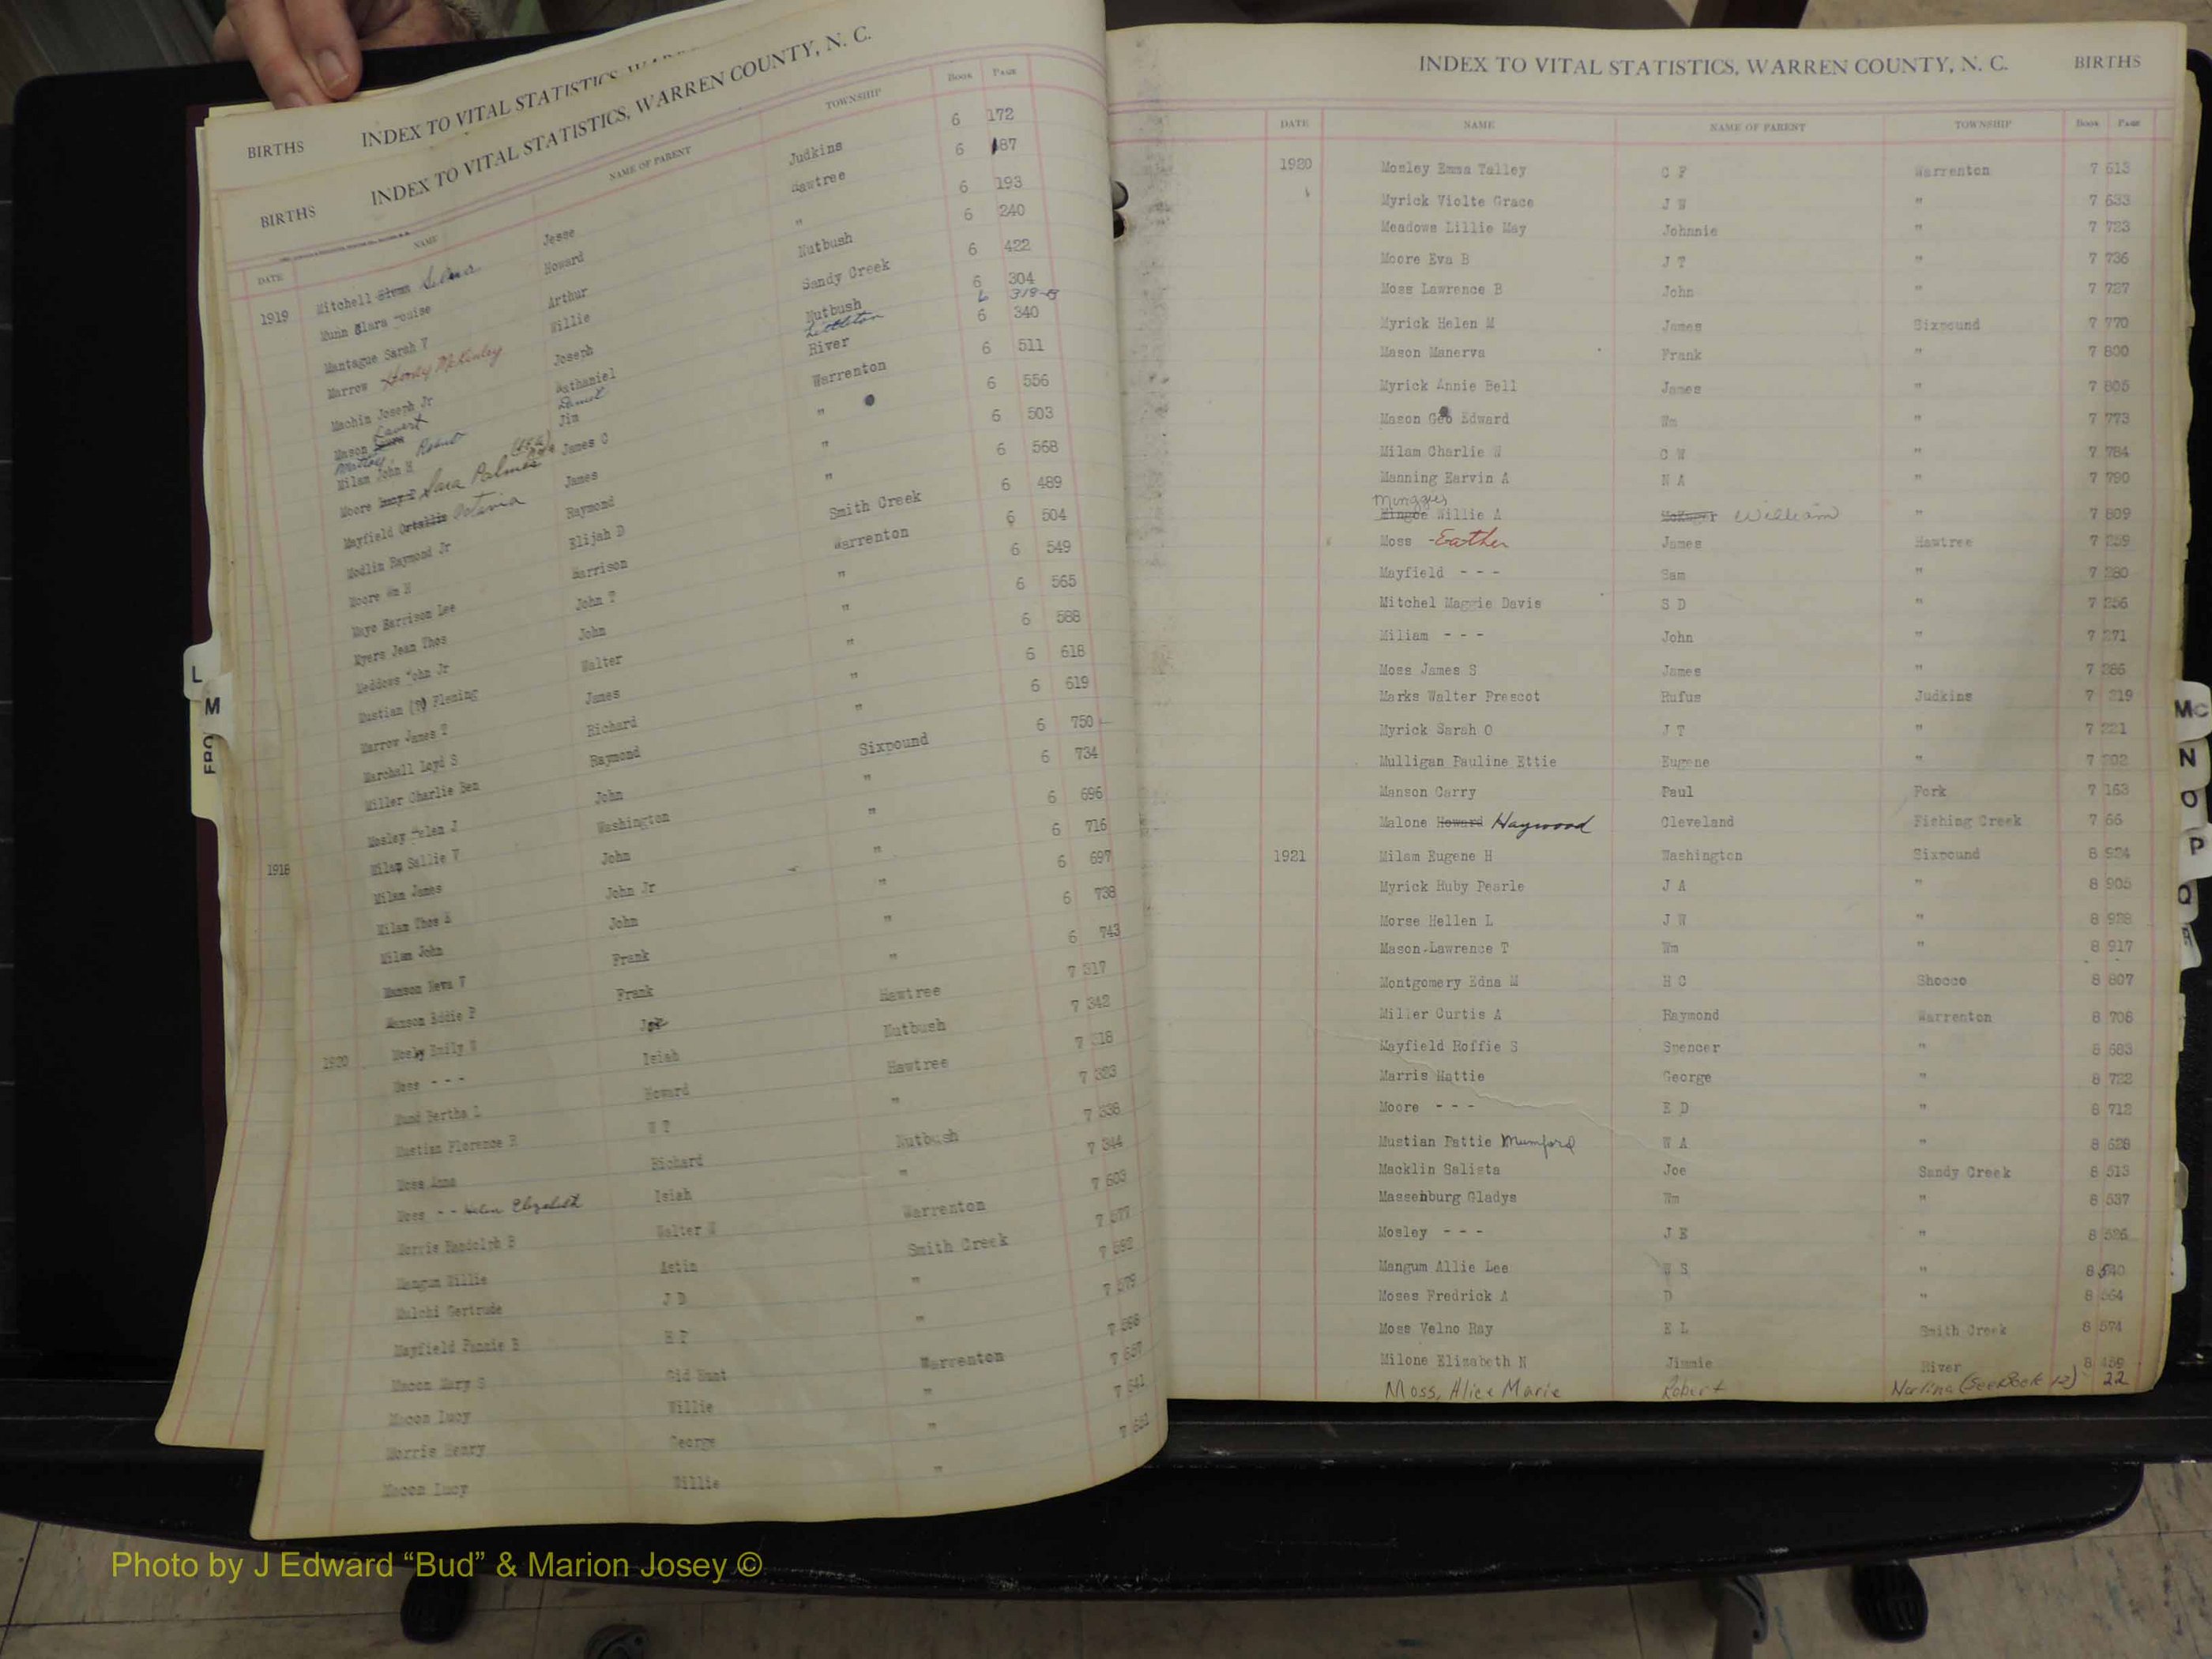 INDEX TO VITAL STATISTICS, WARREN COUNTY, N. C.
BIRTHS
BIRTHS INDEX TO VITAL STATISTICS, WARREN COUNTY, N. C.
DATE NAME NAME OF PARENT TOWNSHIP Book Page
1919 Mitchell Jesse Judkins 6 172
Munn Clara Louise Howard Hawtree 6 187
Mantague Sarah V Arthur " 6 193
Marrow Willie Nutbush 6 240
Machin Joseph Jr Joseph Sandy Creek 6 422
Mason Nathaniel Nutbush 6 304
Robert Daniel Littleton 6 318-B
Milam John H Jim River 6 340
Moore Sara Palmer James C Warrenton 6 511
Mayfield Octavia James " 6 556
Modlin Raymond Jr Raymond " 6 503
Moore Wm H Elijah D " 6 568
Mayo Harrison Lee Harrison Smith Creek 6 489
Myers Jean Thos John T Warrenton 6 504
Meddows John Jr John " 6 549
Mustian (?) Fleming Walter " 6 565
Marrow James T James " 6 588
Marchall Loyd S Richard " 6 618
Miller Charlie Ben Raymond " 6 619
Mosley Helen J John Sixpound 6 750
1918 Milam Sallie V Washington " 6 734
Milam James John " 6 696
Milam Thos A John Jr " 6 716
Milam John John " 6 697
Manson Neva V Frank " 6 738
Manson Eddie P Frank " 6 743
1920 Mosly Emily W Joe Hawtree 7 317
Moss - - - Isiah Nutbush 7 342
Mund Bertha L Howard Hawtree 7 318
Mustian Florence R W T " 7 323
Moss Anna Richard Nutbush 7 338
Moss - - Helen Elizabeth Isiah " 7 344
Morris Randolph B Walter W Warrenton 7 603
Mangum Willie Astin Smith Creek 7 577
Mulchi Gertrude J D " 7 582
Mayfield Fannie B H P " 7 579
Macon Mary S Gid Hunt Warrenton 7
Macon Lucy Willie " 7
Morris Henry George " 7
Macon Lucy Willie " 7
INDEX TO VITAL STATISTICS, WARREN COUNTY, N. C. BIRTHS
DATE NAME NAME OF PARENT TOWNSHIP Book Page
1920 Mosley Emma Talley C F Warrenton 7 613
Myrick Violte Grace J W " 7 633
Meadows Lillie May Johnnie " 7 723
Moore Eva B J T " 7 736
Moss Lawrence B John " 7 727
Myrick Helen M James Sixpound 7 770
Mason Manerva Frank " 7 800
Myrick Annie Bell James " 7 805
Mason Geo Edward Wm " 7 773
Milam Charlie W C W " 7 784
Manning Earvin A N A " 7 790
Minggus
Mingoe Willie A William " 7 809
Moss Eather James Hawtree 7 259
Mayfield - - - Sam " 7 280
Mitchel Maggie Davis S D " 7 256
Miliam - - - John " 7 271
Moss James S James " 7 286
Marks Walter Prescot Rufus Judkins 7 219
Myrick Sarah O J T " 7 221
Mulligan Pauline Ettie Eugene " 7 202
Manson Carry Paul Fork 7 163
Malone Howard Haywood Cleveland Fishing Creek 7 66
1921 Milam Eugene H Washington Sixpound 8 924
Myrick Ruby Pearle J A " 8 905
Morse Hellen L J W " 8 928
Mason Lawrence T Wm " 8 917
Montgomery Edna M H C Shocco 8 807
Miller Curtis A Raymond Warrenton 8 708
Mayfield Roffie S Spencer " 8 683
Marris Hattie George " 8 722
Moore - - - E D " 8 712
Mustian Pattie Mumford W A " 8 628
Macklin Salista Joe Sandy Creek 8 513
Massenburg Gladys Wm " 8 537
Mosley - - - J E " 8 526
Mangum Allie Lee W S " 8 540
Moses Fredrick A D " 8 564
Moss Velno Ray E L Smith Creek 8 574
Milone Elizabeth N Jimmie River 8 459
Moss, Alice Marie Robert Norlina (See Book 12) 22
L
M
Mc
N
O
P
Q
R
Photo by J Edward “Bud” & Marion Josey ©